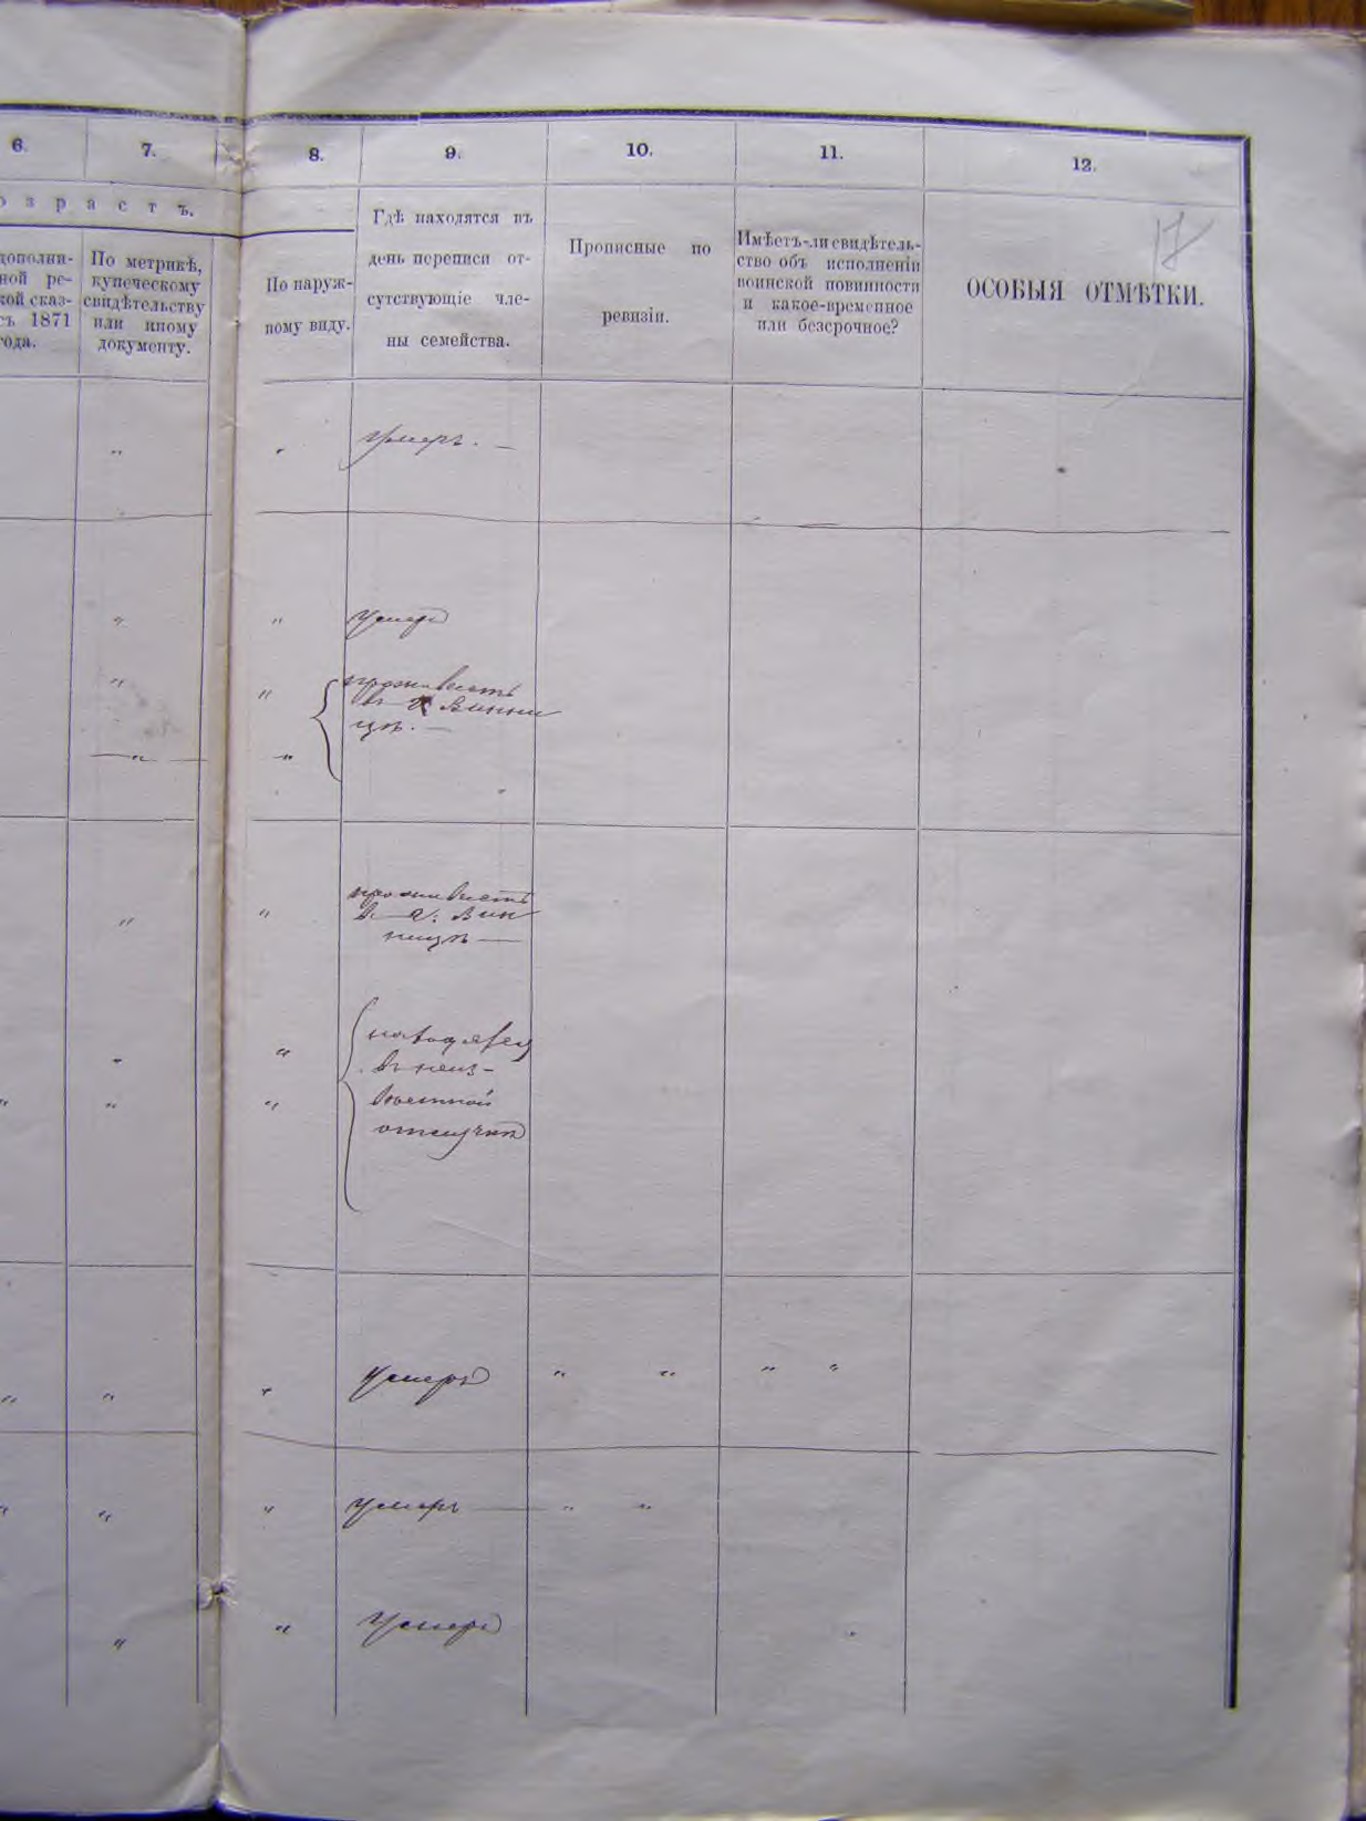 6. 7. 8. 9. 10. 11. 12.
озрастъ.
дополни-
ной ре-
кой сказ-
съ 1871
года.
По метрикѣ,
купеческому
свидѣтельству
или иному
документу.
По наруж-
ному виду.
Гдѣ находятся въ
день переписи от-
сутствующіе чле-
ны семейства.
Прописные по
ревизіи.
Имѣетъ-ли свидѣтель-
ство объ исполненіи
воинской повинности
и какое-временное
или безсрочное?
ОСОБЫЯ ОТМѢТКИ.
17
" " умеръ. —
" " умеръ
" " проживаетъ
въ г. Винни
цѣ. —
" "
" " проживаетъ
въ г. Вин
ницѣ —
" " находятся
въ неиз-
" " " вѣстной
отлучкѣ
" " " умеръ " " " "
" " " умеръ — " "
" " умеръ